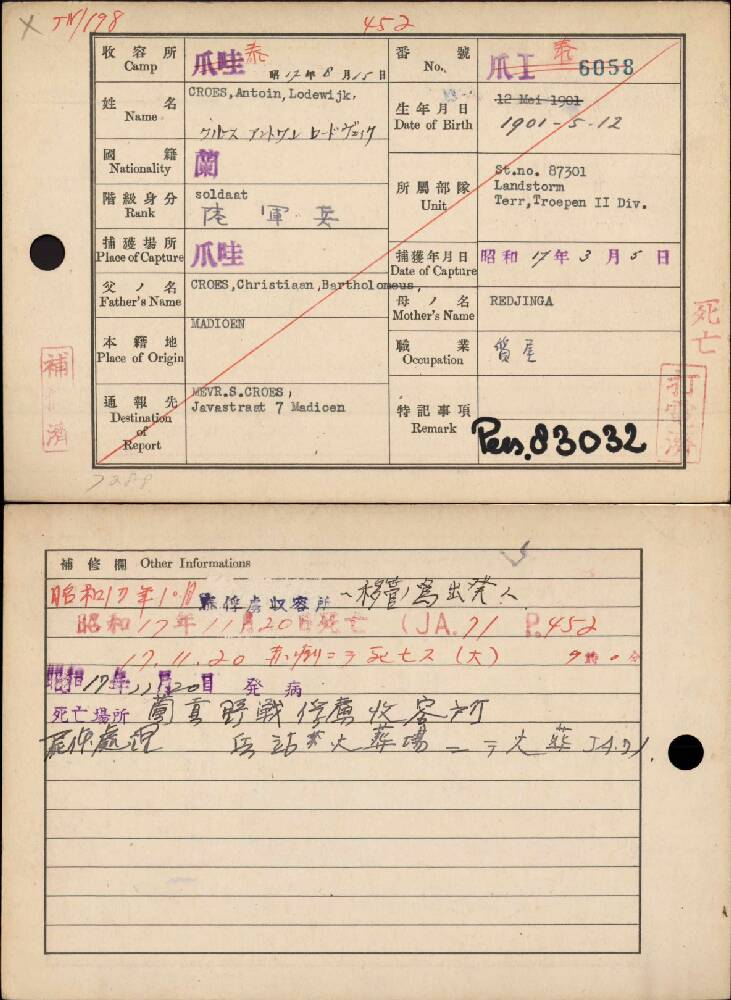 JN/198
452
收容所 Camp 爪哇 泰 昭17年8月15日
番號 No. 爪I 泰 6058
姓名 Name CROES,Antoin,Lodewijk,
クルース アントワン ロードヴェイク
生年月日 Date of Birth 12 Mei 1901
1901-5-12
國籍 Nationality 蘭
階級身分 Rank soldaat
陸軍兵
所屬部隊 Unit St.no. 87301
Landstorm
Terr,Troepen II Div.
捕獲場所 Place of Capture 爪哇
捕獲年月日 Date of Capture 昭和17年3月5日
父ノ名 Father's Name CROES,Christiaan,Bartholomeus,
母ノ名 Mother's Name REDJINGA
本籍地 Place of Origin MADIOEN
職業 Occupation 質屋
通報先 Destination of Report MEVR.S.CROES,
Javastraat 7 Madioen
特記事項 Remark Pers.83032
死亡
補 済
7288
補修欄 Other Informations
昭和17年10月 泰俘虜収容所へ移管ノ為出発ス
昭和17年11月20日死亡 (JA.71 P.452
17.11.20 ニテ死亡ス (大) 9時0分
昭和17年11月20日 発病
死亡場所 野戦俘虜收容所
屍体處理 火葬場ニテ火葬 JA.71.